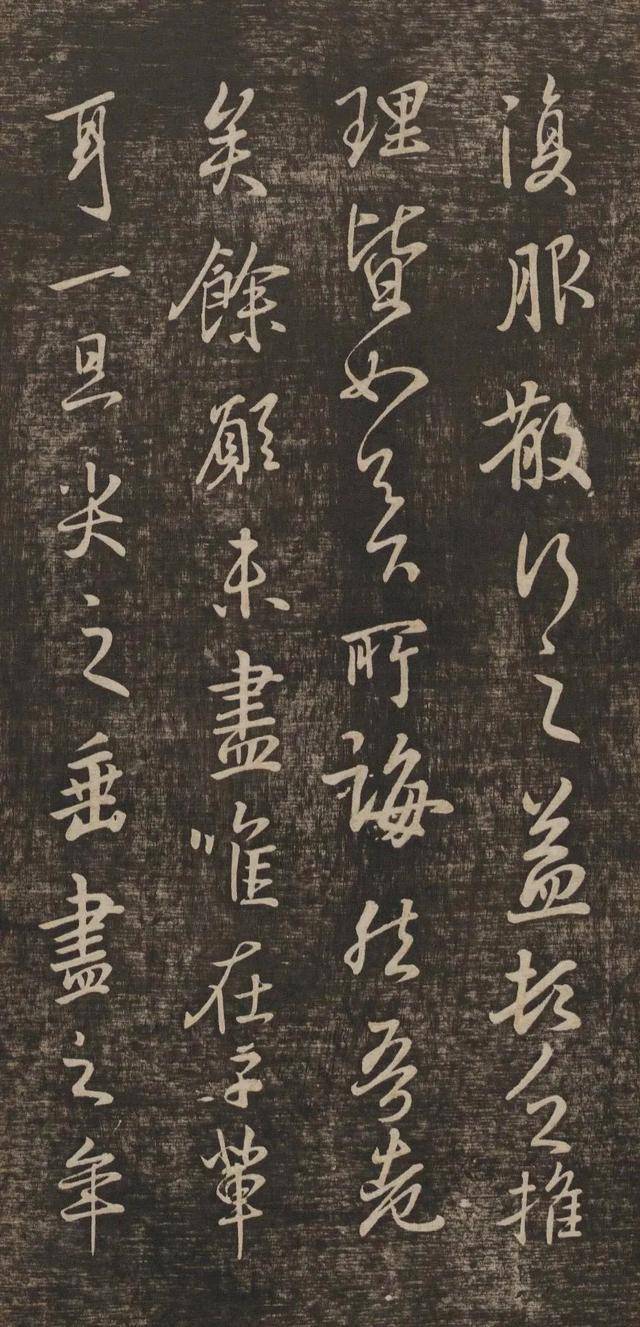 復服散行之益頓乏推
理皆如足下所誨然吾老
矣餘願未盡唯在子輩
耳一旦哭之垂盡之年